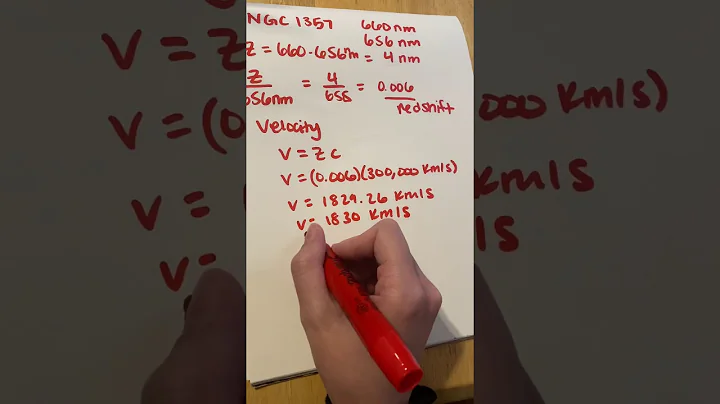 NGC 1357 660nm
656nm
Z = 660-656nm = 4 nm
Z/656nm = 4/656 = 0.006
redshift
Velocity
V = Z C
V = (0.006)(300,000 km/s)
V = 1829.26 km/s
V = 1830 km/s